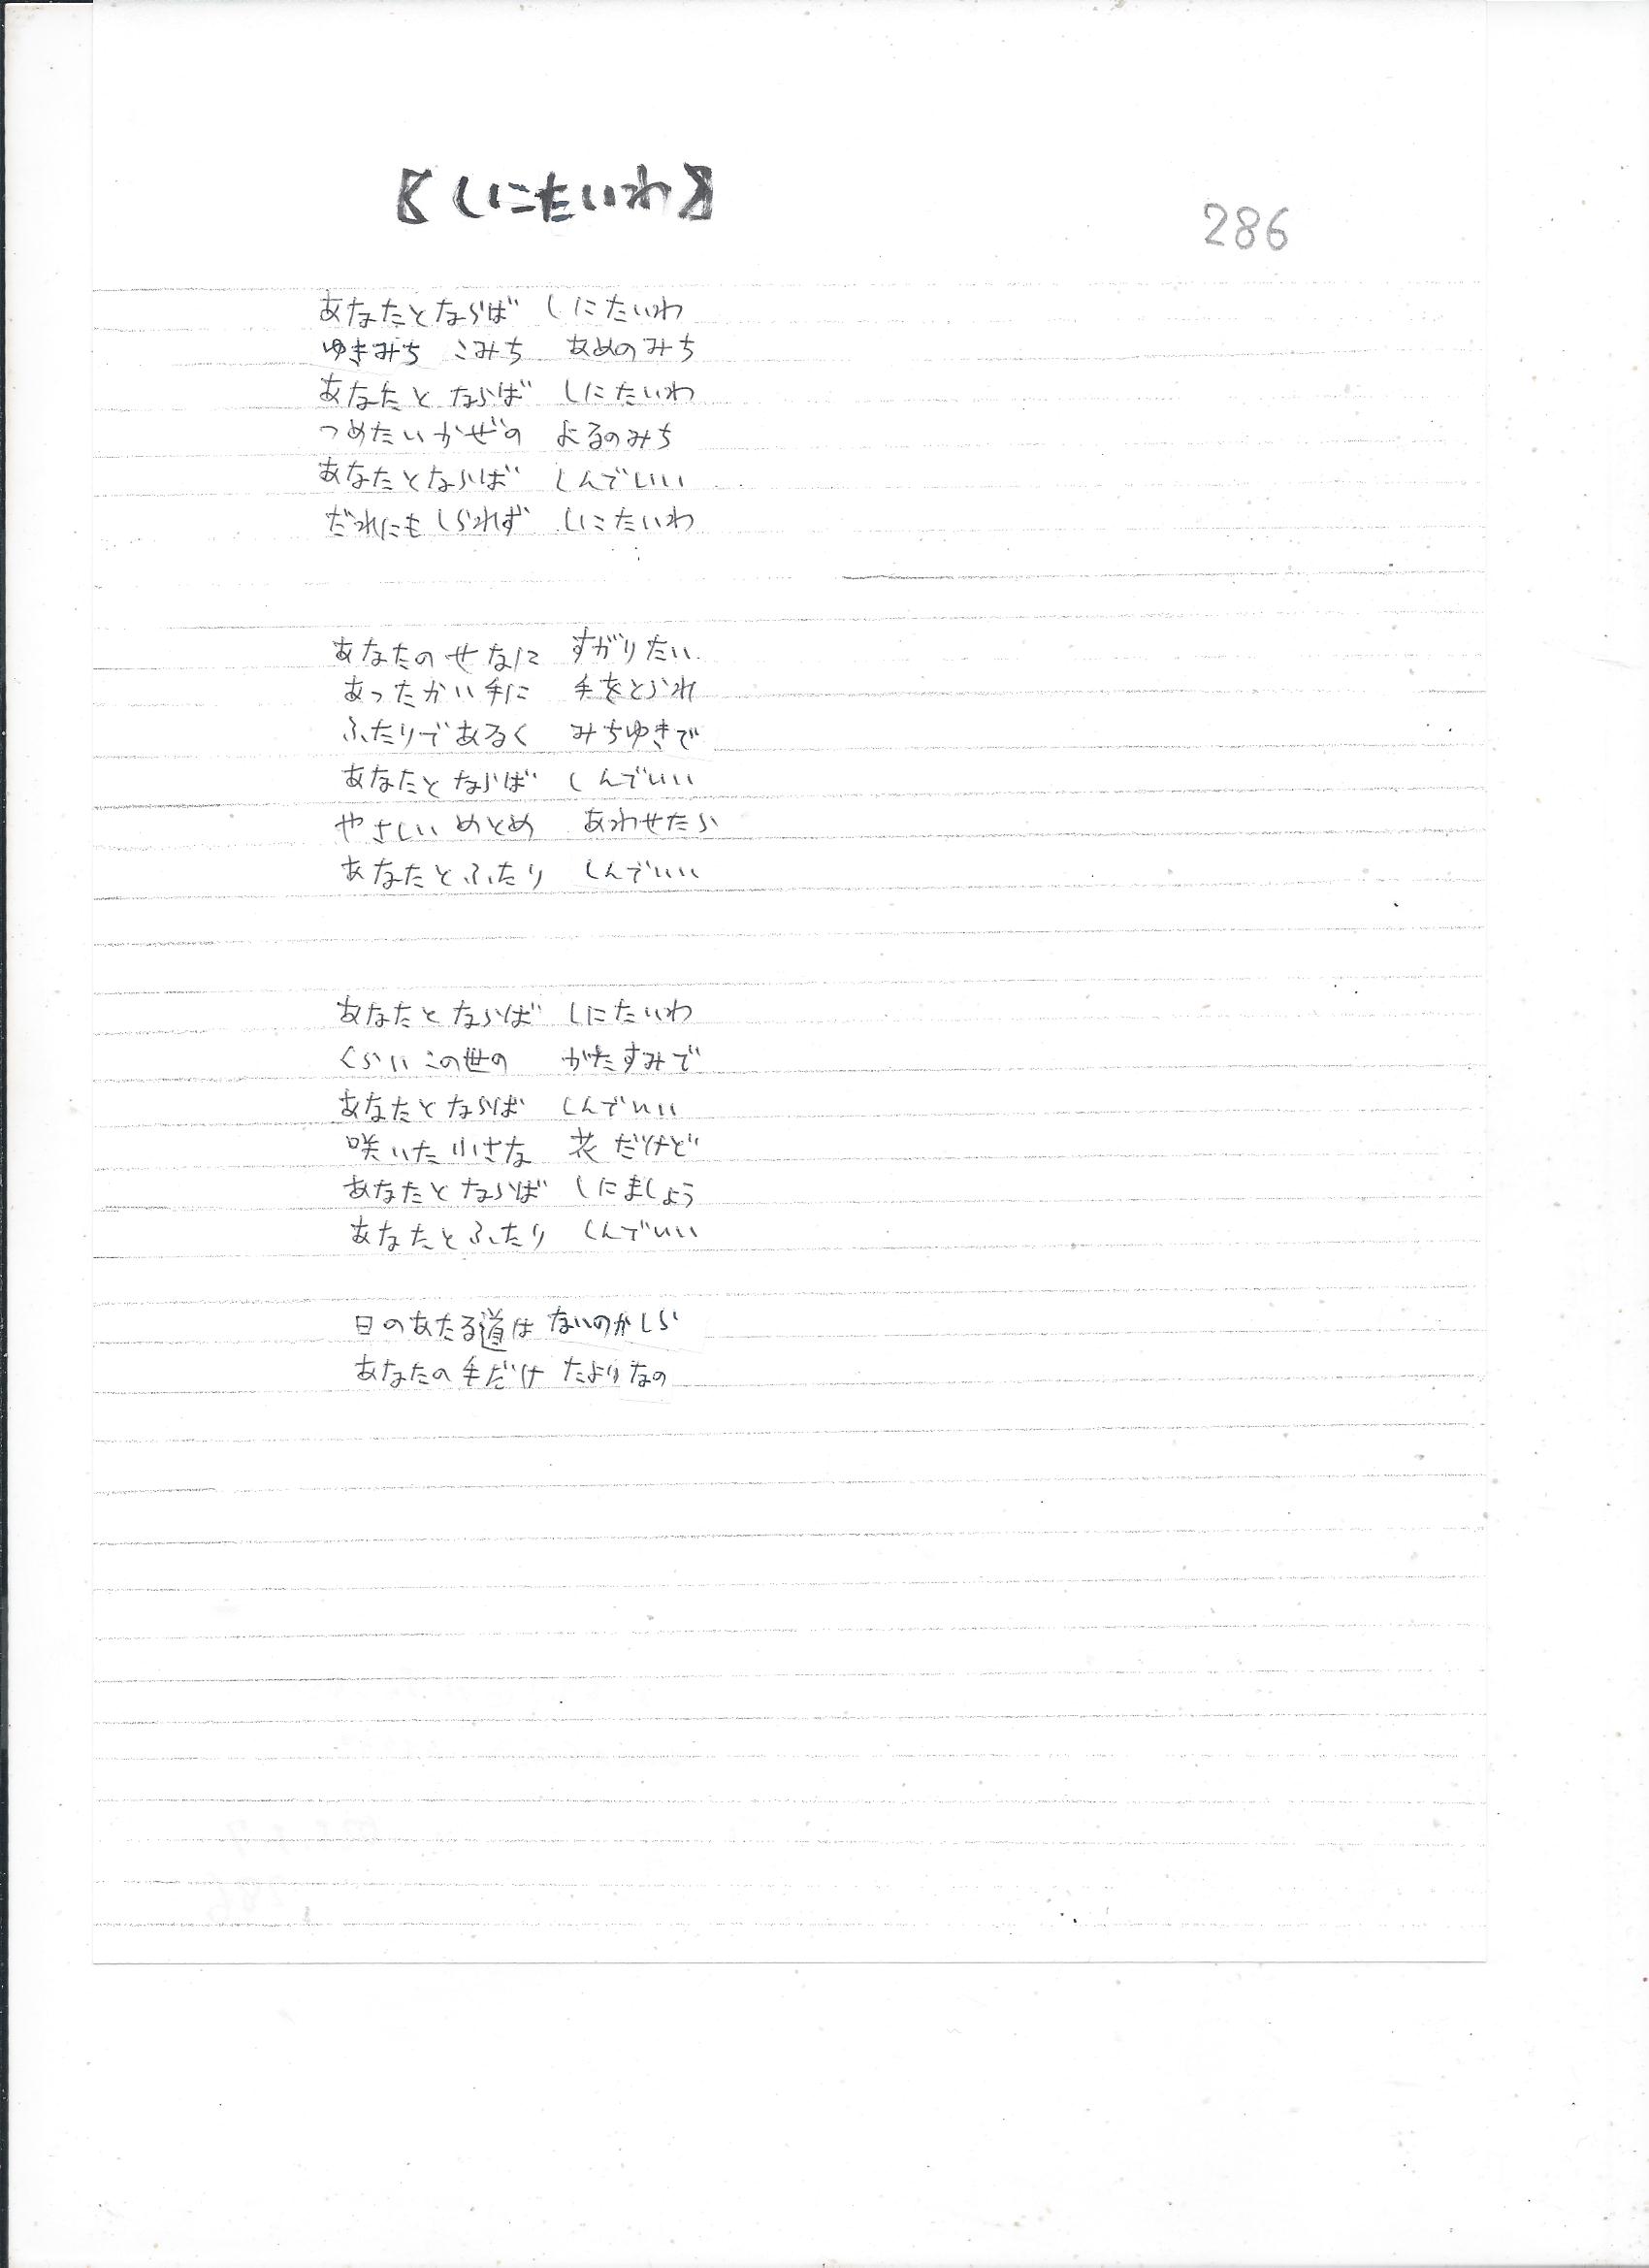 【しにたいわ】
286
あなたとならば しにたいわ
ゆきみち こみち あめのみち
あなたと ならば しにたいわ
つめたいかぜの よるのみち
あなたとならば しんでいい
だれにもしられず しにたいわ
あなたのせなに すがりたい
あったかい手に 手をとられ
ふたりであるく みちゆきで
あなたとならば しんでいい
やさしいめとめ あわせたら
あなたとふたり しんでいい
あなたとならば しにたいわ
くらいこの世の かたすみで
あなたとならば しんでいい
咲いた小さな 花だけど
あなたとならば しにましょう
あなたとふたり しんでいい
日のあたる道は ないのかしら
あなたの手だけ たよりなの